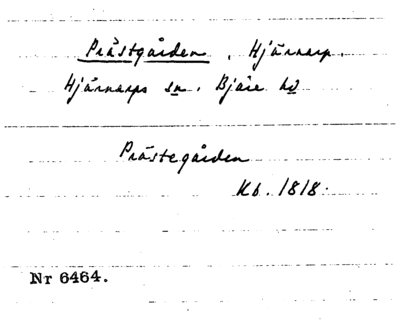 Prästgården, Hjärnarp.
Hjärnarps sn. Bjäre hd
Prästegården
Kb. 1818.
Nr 6464.